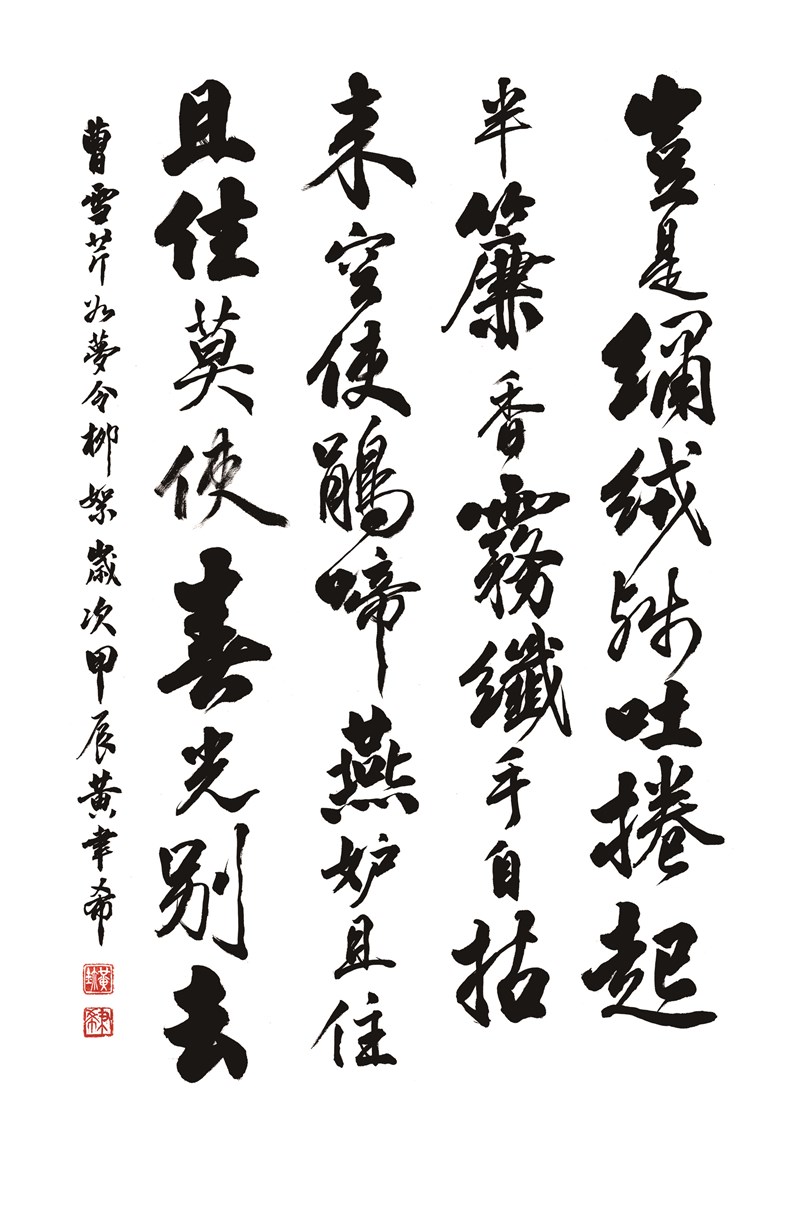 豈是繡絨殘吐捲起
半簾香霧纖手自拈
来空使鵑啼燕妒且住
且住莫使春光別去
曹雪芹如夢令柳絮歲次甲辰黃希